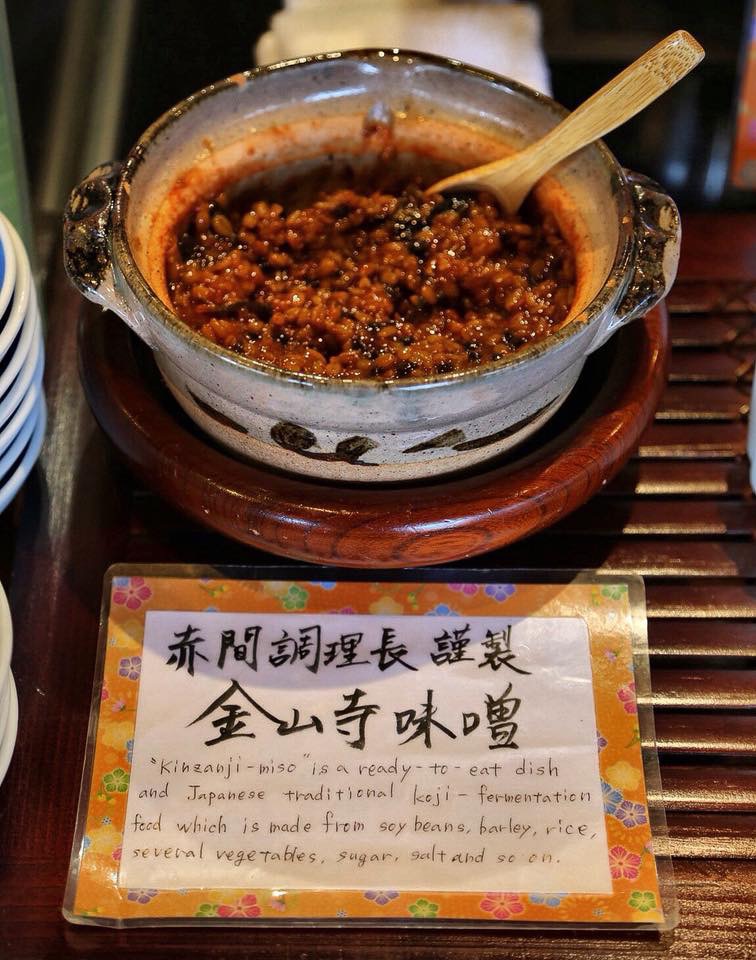 赤間調理長 謹製
金山寺味噌
"Kinzanji-miso" is a ready-to-eat dish
and Japanese traditional koji-fermentation
food which is made from soy beans, barley, rice,
several vegetables, sugar, salt and so on.